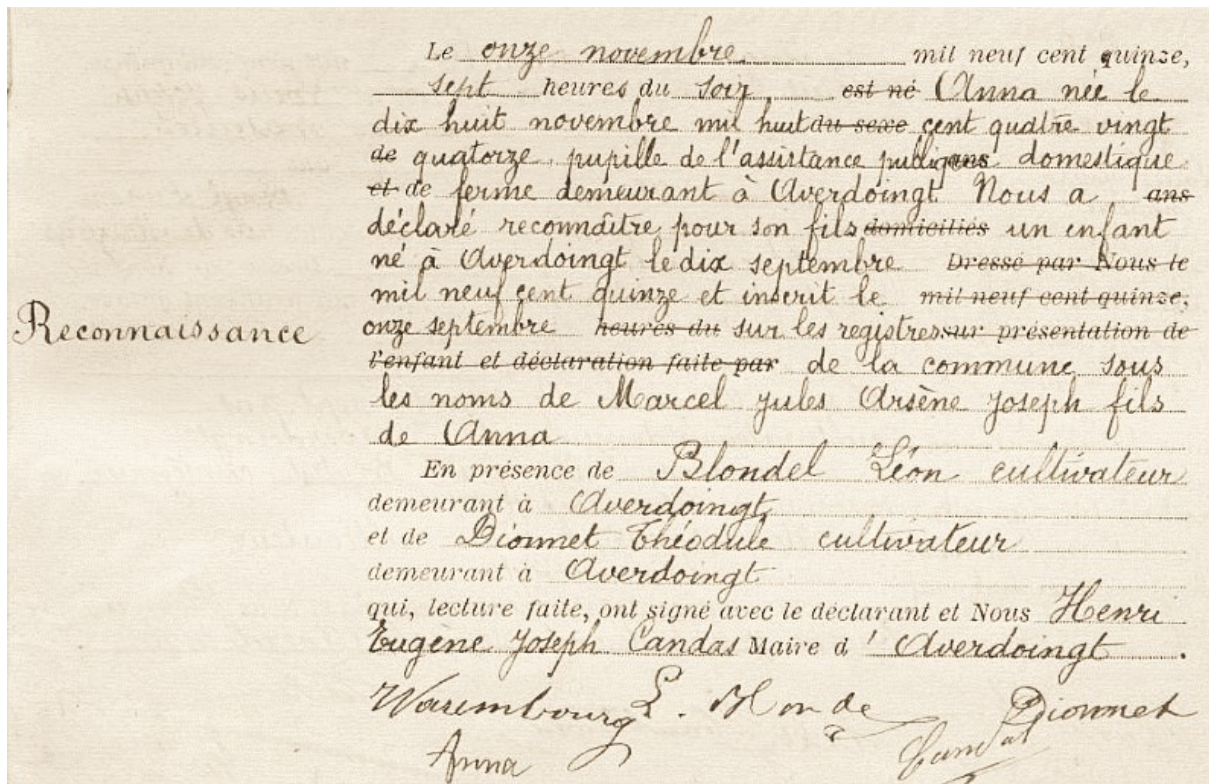 Le onze novembre mil neuf cent quinze,
sept heures du soir, est né Anna née le
dix huit novembre mil huit du sexe cent quatre vingt
de quatorze, pupille de l'assistance publique domestique
et de ferme demeurant à Averdoingt Nous a ans
déclaré reconnaître pour son fils domiciliés un enfant
né à Averdoingt le dix septembre Dressé par Nous le
mil neuf cent quinze et inscrit le mil neuf cent quinze,
Reconnaissance
onze septembre heures du sur les registres sur présentation de
l'enfant et déclaration faite par de la commune sous
les noms de Marcel Jules Arsène Joseph fils
de Anna
En présence de Blondel Léon cultivateur
demeurant à Averdoingt
et de Dionnet Théodule cultivateur
demeurant à Averdoingt
qui, lecture faite, ont signé avec le déclarant et Nous Henri
Eugène Joseph Candas Maire d'Averdoingt.
Warembourg L. Blondel Dionnet
Anna Candas